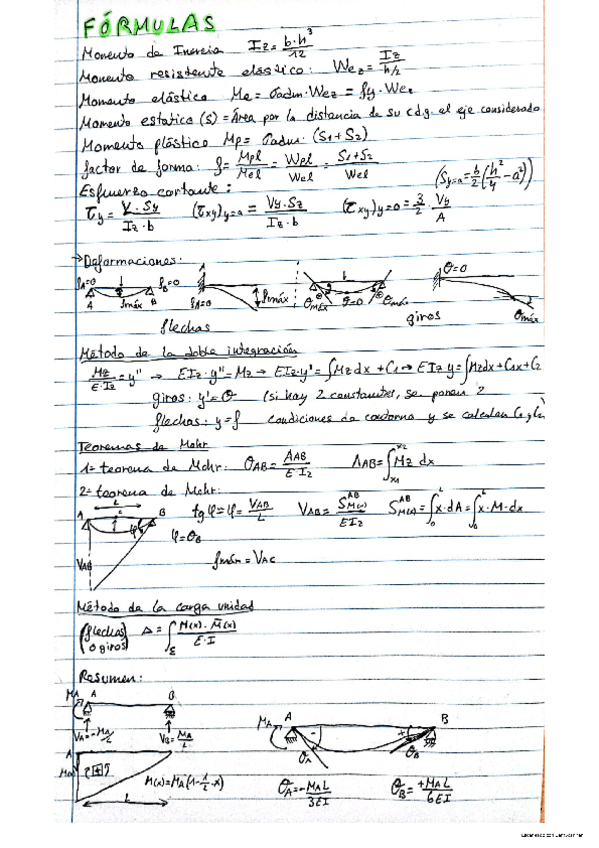 FÓRMULAS
Momento de Inercia Iz = b·h³/12
Momento resistente elástico: Wez = Iz/(h/2)
Momento elástico Me = σadm·Wez = fy·Wez
Momento estatico (S) = Área por la distancia de su c.d.g. el eje considerado
Momento plástico Mp = σadm·(S1+S2)
factor de forma: f = Mpl/Mel = Wpl/Wel = (S1+S2)/Wel
(Sy=a = b/2 (h²/4 - a²))
Esfuerzo cortante:
τy = V·Sy/(Iz·b) (τxy)y=a = Vy·Sz/(Iz·b) (τxy)y=0 = 3/2 · Vy/A
→ Deformaciones:
fA=0 fmáx fB=0 A B
A fA=0 fmáx
L θmáx θ=0 θmáx
θ=0 θmáx
flechas giros
Método de la doble integración
Mz/(E·Iz) = y'' → EIz·y'' = Mz → EIz·y' = ∫Mz dx + C1 → EIz y = ∫Mzdx + C1x + C2
giros: y' = θ (si hay 2 constantes, se ponen 2
flechas: y = f condiciones de contorno y se calculan C1 y C2)
Teoremas de Mohr
1º teorema de Mohr: θAB = AAB/(E Iz) AAB = ∫x1 x2 Mz dx
2º teorema de Mohr:
A L B φ
tg φ = φ = VAB/L VAB = SM(A)AB/(EIz) SM(A)AB = ∫0 L x·dA = ∫0 L x·M·dx
φ = θB
VAB
fmáx = VAC
Método de la carga unidad
(flechas o giros) Δ = ∫ M(x)·M̄(x)/(E·I)
Resumen:
MA A B
VA = -MA/L VB = MA/L
A MA
M(x) = MA(1 - 1/L·x)
L
MA A - + B
θA θB
θA = -MA L/3EI θB = +MA L/6EI